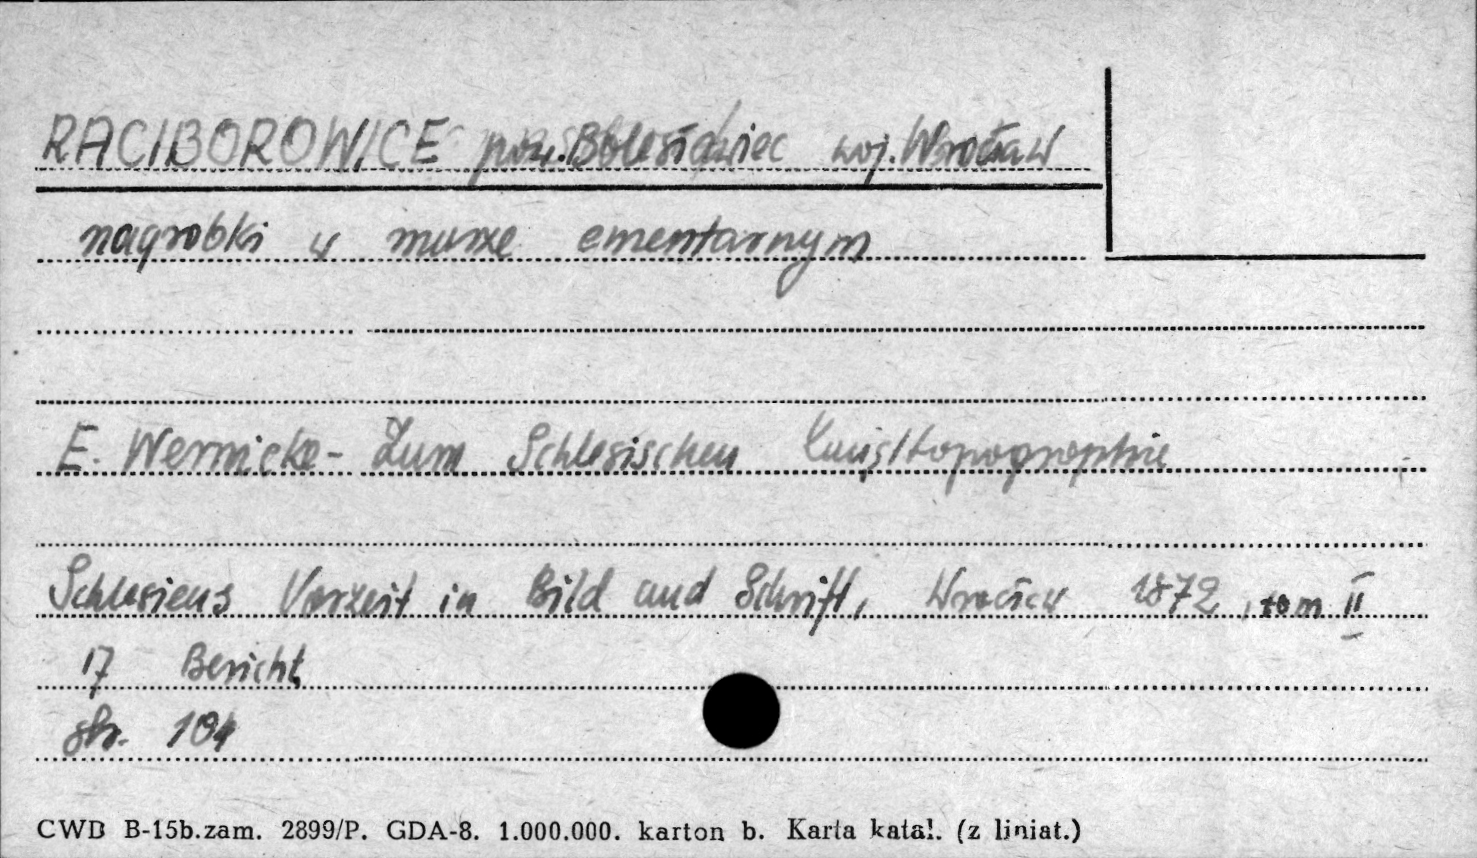 RACIBOROWICE pow. Bolesławiec woj. Wrocław
nagrobki w murze cmentarnym
E. Wernicke - Zum Schlesischen Kunsttopographie
Schlesiens Vorzeit in Bild und Schrift, Wrocław 1872, tom II
17 Bericht
str. 104
CWD B-15b.zam. 2899/P. GDA-8. 1.000.000. karton b. Karta katal. (z liniat.)